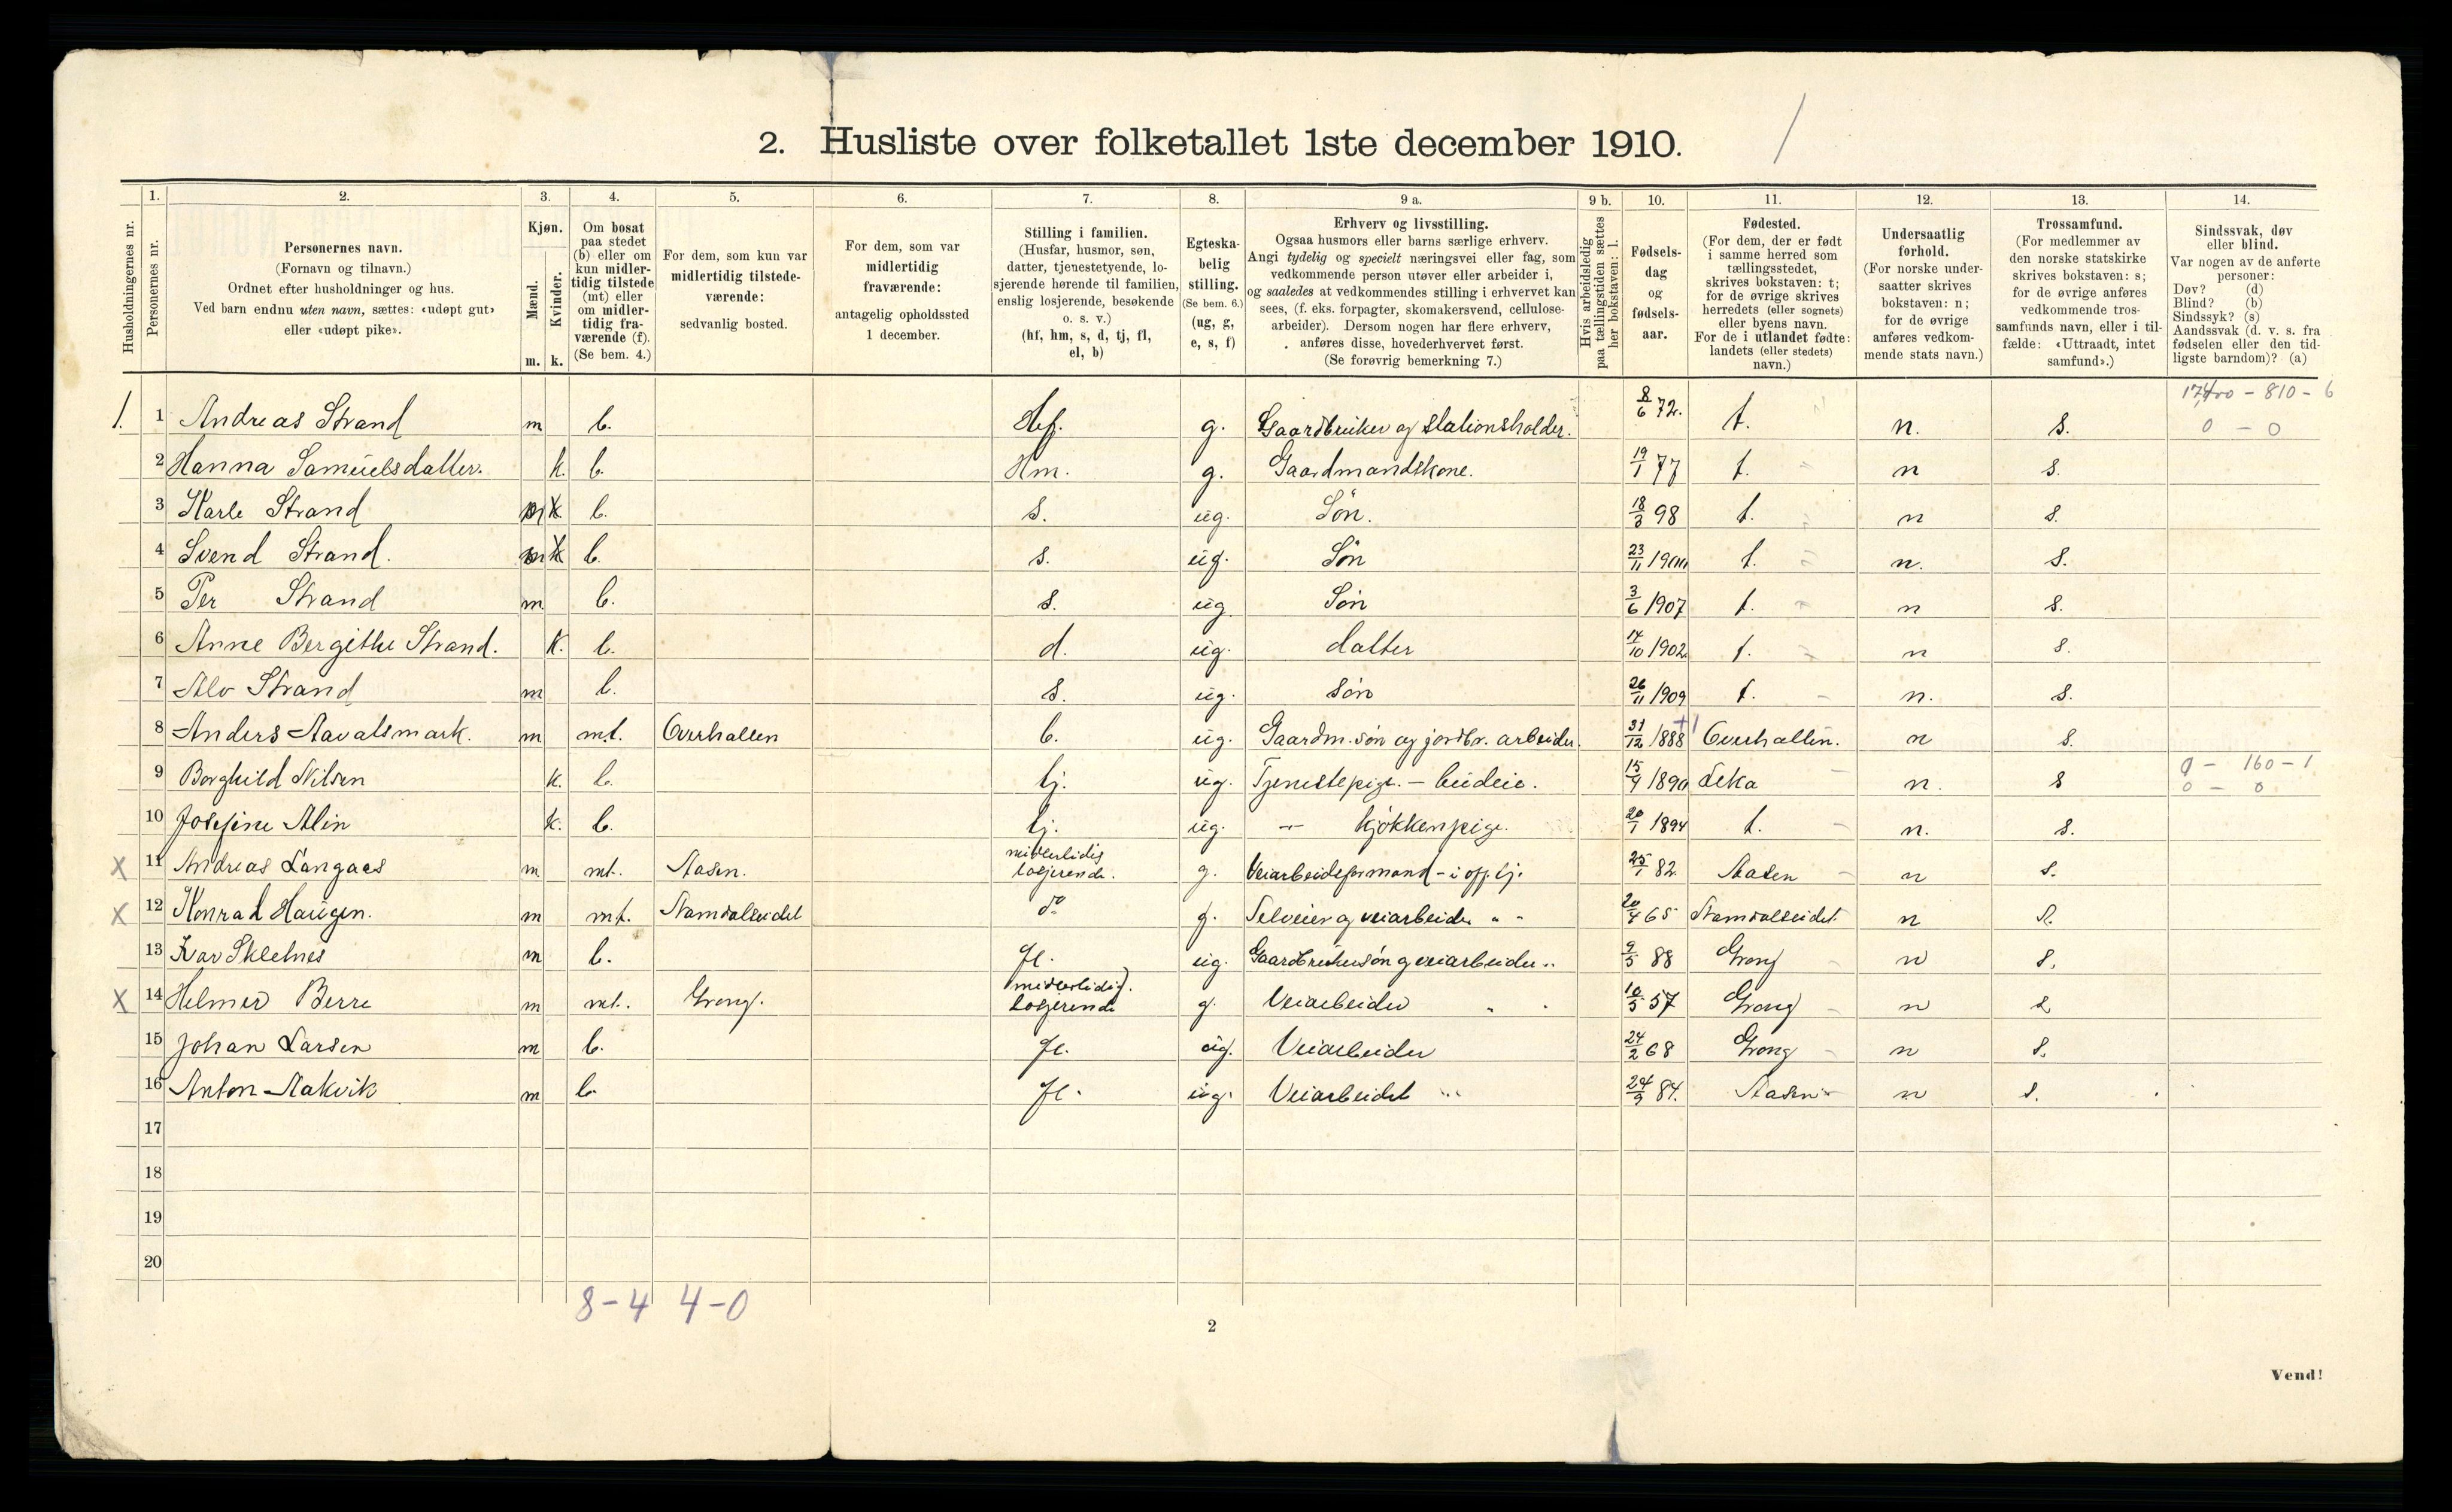 2. Husliste over folketallet 1ste december 1910.
1. 2. 3. 4. 5. 6. 7. 8. 9 a. 9 b. 10. 11. 12. 13. 14.
Husholdningernes nr.
Personernes nr.
Personernes navn.
(Fornavn og tilnavn.)
Ordnet efter husholdninger og hus.
Ved barn endnu uten navn, sættes: «udøpt gut»
eller «udøpt pike».
Kjøn.
Mænd.
Kvinder.
m. k.
Om bosat
paa stedet
(b) eller om
kun midler-
tidig tilstede
(mt) eller
om midler-
tidig fra-
værende (f).
(Se bem. 4.)
For dem, som kun var
midlertidig tilstede-
værende:
sedvanlig bosted.
For dem, som var
midlertidig
fraværende:
antagelig opholdssted
1 december.
Stilling i familien.
(Husfar, husmor, søn,
datter, tjenestetyende, lo-
sjerende hørende til familien,
enslig losjerende, besøkende
o. s. v.)
(hf, hm, s, d, tj, fl,
el, b)
Egteska-
belig
stilling.
(Se bem. 6.)
(ug, g,
e, s, f)
Erhverv og livsstilling.
Ogsaa husmors eller barns særlige erhverv.
Angi tydelig og specielt næringsvei eller fag, som
vedkommende person utøver eller arbeider i,
og saaledes at vedkommendes stilling i erhvervet kan
sees, (f. eks. forpagter, skomakersvend, cellulose-
arbeider). Dersom nogen har flere erhverv,
anføres disse, hovederhvervet først.
(Se forøvrig bemerkning 7.)
Hvis arbeidsledig
paa tællingstiden sættes
her bokstaven: l.
Fødsels-
dag
og
fødsels-
aar.
Fødested.
(For dem, der er født
i samme herred som
tællingsstedet,
skrives bokstaven: t;
for de øvrige skrives
herredets (eller sognets)
eller byens navn.
For de i utlandet fødte:
landets (eller stedets)
navn.)
Undersaatlig
forhold.
(For norske under-
saatter skrives
bokstaven: n;
for de øvrige
anføres vedkom-
mende stats navn.)
Trossamfund.
(For medlemmer av
den norske statskirke
skrives bokstaven: s;
for de øvrige anføres
vedkommende tros-
samfunds navn, eller i til-
fælde: «Uttraadt, intet
samfund».)
Sindssvak, døv
eller blind.
Var nogen av de anførte
personer:
Døv? (d)
Blind? (b)
Sindssyk? (s)
Aandssvak (d. v. s. fra
fødselen eller den tid-
ligste barndom)? (a)
1. 1 Andreas Strand m b. Hf. g. Gaardbruker og stationsholder. 8/6 72. t. n. s. 0 - 0
2 Hanna Samuelsdatter. k. b. Hm. g. Gaardmandskone. 19/1 77 t. n s.
3 Karle Strand m b. s. ug. Søn. 18/3 98 t. n s.
4 Svend Strand. m b. s. ug. Søn 23/11 t. n. s.
5 Per Strand m b. s. ug Søn 3/6 1907 t. n s.
6 Anne Bergithe Strand. k. b. d. ug. datter 14/10 1902 t. n s.
7 Alv Strand m b. s. ug. søn 26/11 1909 t. n. s.
8 Anders Aavatsmark. m mt. Overhallen b. ug. Gaardm. søn og jordbr. arbeider. 31/12 1888 Overhallen. n s.
9 Borghild Nilsen k. b. tj. ug. Tjenestepige - budeie. 15/9 1890 Leka n. s 0 - 160 - 1
0 - 0
10 Josefine Alin k. b. tj. ug. — kjøkkenpige. 20/1 1894 t. n. s.
x 11 Andreas Langaas m mt. Aasen. midlertidig losjerende. g. Veiarbeidsformand - i off. tj. 25/1 82. Aasen n s.
x 12 Konrad Haugen. m mt. Namdalseidet do g. Selveier og veiarbeider " " 20/4 65 Namdalseidet n s.
13 Ivar Skletnes m b. fl. ug. Gaardbrukersøn og veiarbeider " 9/5 88 Grong n s.
x 14 Helmer Berre m mt. Grong. midlertidig. losjerende g. Veiarbeider " " 10/5 57 Grong n s
15 Johan Larsen m b. fl. ug. Veiarbeider 24/2 68 Grong n s.
16 Anton Aakvik m b. fl. ug. Veiarbeider " 24/9 84. Aasen n s.
17
18
19
20
8-4 4-0
2
Vend!